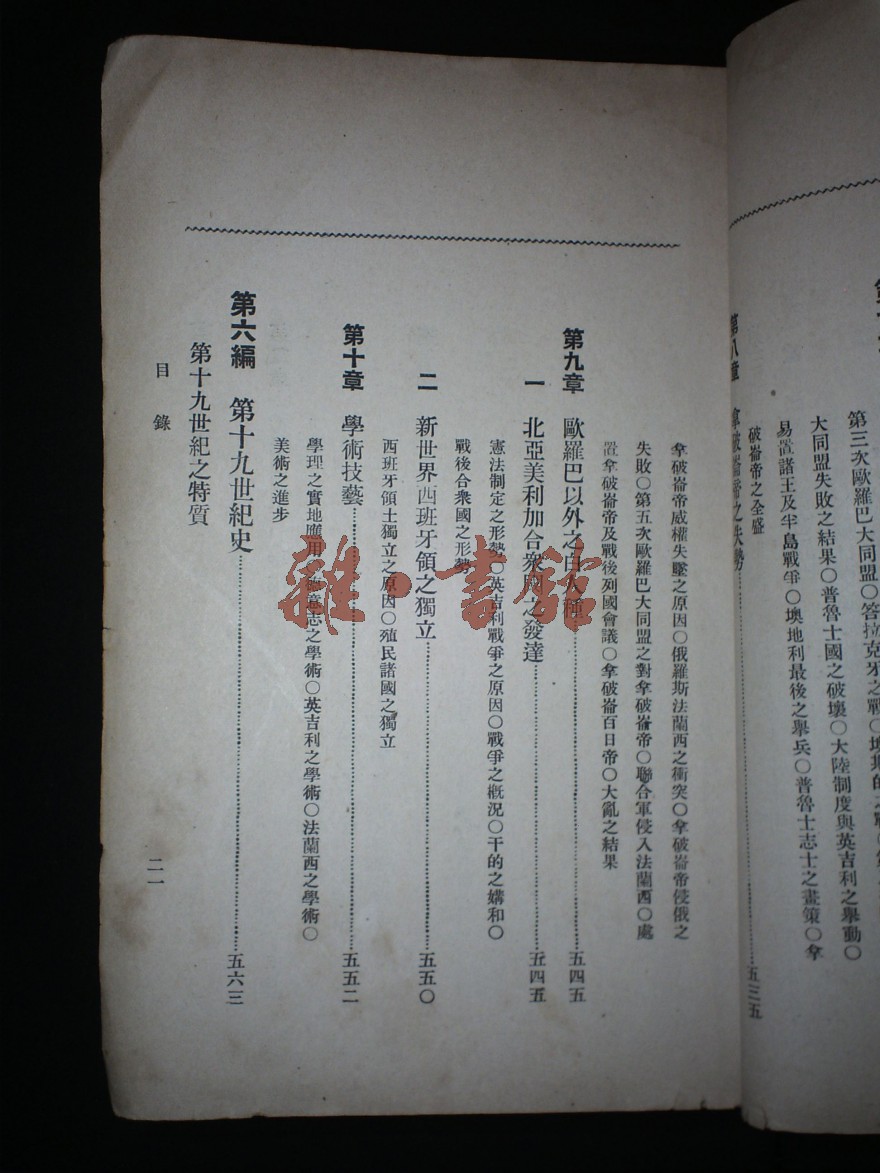 第三次歐羅巴大同盟〇答拉克牙之戰〇
大同盟失敗之結果〇普魯士國之破壞〇大陸制度與英吉利之舉動〇
易置諸王及半島戰爭〇墺地利最後之舉兵〇普魯士志士之畫策〇拿
破崙帝之全盛
第八章 拿破崙帝之失勢 五三五
拿破崙帝威權失墜之原因〇俄羅斯法蘭西之衝突〇拿破崙帝侵俄之
失敗〇第五次歐羅巴大同盟之對拿破崙帝〇聯合軍侵入法蘭西〇處
置拿破崙帝及戰後列國會議〇拿破崙百日帝〇大亂之結果
第九章 歐羅巴以外之白人種 五四五
一 北亞美利加合衆國之發達 五四五
憲法制定之形勢〇英吉利戰爭之原因〇戰爭之概況〇干的之媾和〇
戰後合衆國之形勢
二 新世界西班牙領之獨立 五五〇
西班牙領土獨立之原因〇殖民諸國之獨立
第十章 學術技藝 五五二
學理之實地應用〇獨意志之學術〇英吉利之學術〇法蘭西之學術〇
美術之進步
第六編 第十九世紀史 五六三
第十九世紀之特質
目錄
二一
雜·書館